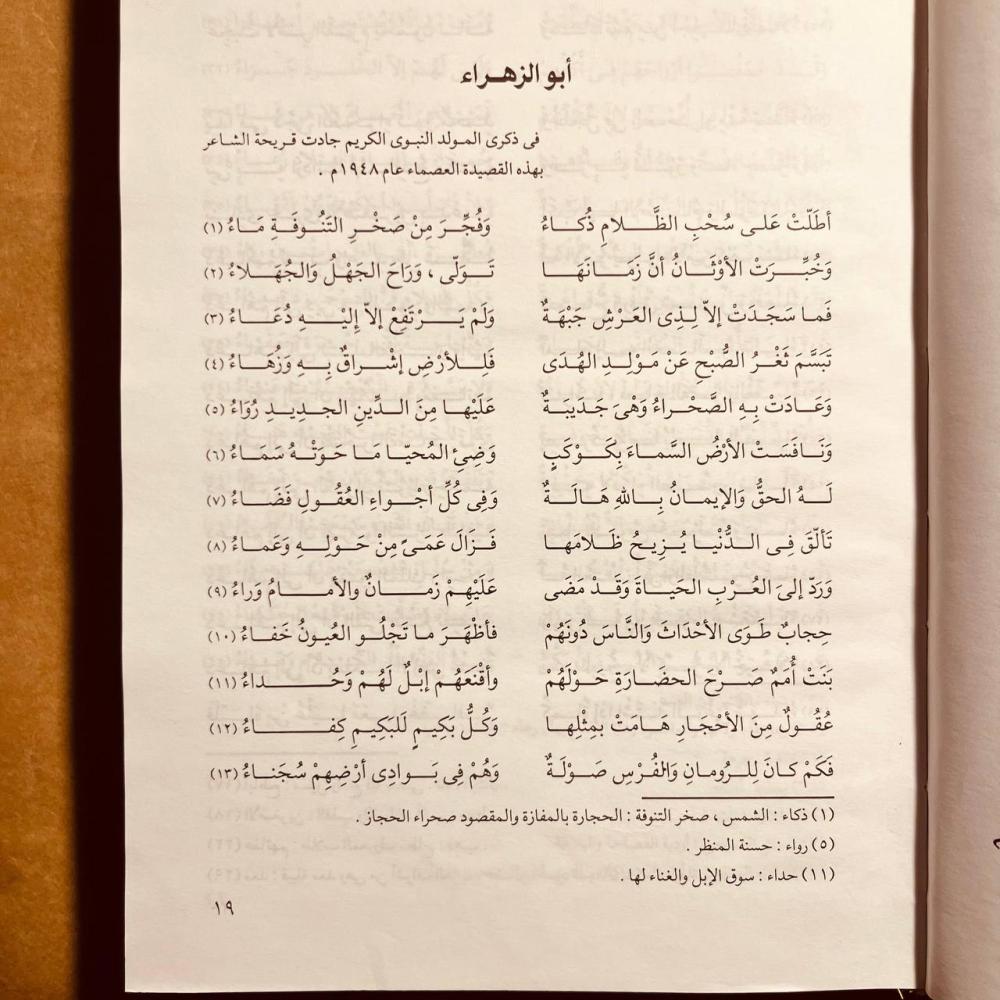 أبو الزهـــراء
فى ذكرى المـولد النبـوى الكريم جادت قـريحة الشاعر
بهذه القصيدة العصماء عام ١٩٤٨م .
أطَلَّتْ عَلـى سُحْبِ الظَّـلامِ ذُكـاءُ وَفُجِّـرَ مِنْ صَخْـرِ التَنُـوفَـةِ مَـاءُ (١)
وَخُبِّـرَتْ الأوْثَـانُ أنَّ زَمَـانَهَـا تَـوَلّى ، وَرَاحَ الجَهْلُ وَالجُهَـلاءُ (٢)
فَمـا سَجَدَتْ إلاّ لِـذِى العَـرْشِ جَبْهَـةٌ وَلَمْ يَـرْتَفِعْ إلاّ إِلَيْـهِ دُعَـاءُ (٣)
تَبَسَّمَ ثَغْـرُ الصُّبْحِ عَنْ مَـوْلِـدِ الهُـدَى فَلِـلأرْضِ إشْـراقٌ بِـهِ وَزُهَـاءُ (٤)
وَعَـادَتْ بِـهِ الصَّحْـراءُ وَهْىَ جَـدَيبَـةٌ عَلَيْهـا مِنَ الـدِّينِ الجـديـدِ رُوَاءُ (٥)
وَنَـافَسَتْ الأرْضُ السَّمـاءَ بِكَـوْكَبٍ وَضِئِ المُحيّـا مَـا حَـوَتْـهُ سَمَـاءُ (٦)
لَـهُ الحقُّ وَالإيمـانُ بِـاللهِ هَـالَـةٌ وَفِى كُلِّ أجْـواءِ العُقُـولِ فَضَـاءُ (٧)
تَألّقَ فِـى الـدُّنْيـا يُـزِيحُ ظَـلامَهـا فَـزَالَ عَمَـىً مِنْ حَـوْلِـهِ وَعَمـاءُ (٨)
وَرَدّ إلىَ العُـرْبِ الحَيـاةَ وَقَـدْ مَضَى عَلَيْهِـمْ زَمَـانٌ والأمَـامُ وَراءُ (٩)
حِجـابٌ طَـوَى الأحْـدَاثَ وَالنَّـاسَ دُونَهُمْ فأظْهَـرَ ما تَجْلُـو العُيونُ خَفـاءُ (١٠)
بَنَتْ أُمَـمٌ صَـرْحَ الحضَـارَةِ حَـوْلَهُمْ وأقْنَعَهُـمْ إبْـلٌ لَهُـمْ وَحُـداءُ (١١)
عُقُـولٌ مِنَ الأحْجَـارِ هَـامَتْ بِمِثْلِهـا وَكُـلُّ بَكِيـمٍ لَلبَكِيـمِ كِفَـاءُ (١٢)
فَكَمْ كـانَ لِلـرُومـانِ وَالفُـرْسِ صَـوْلَـةٌ وَهُمْ فِى بَـوادِى أرْضِهِـمْ سُجَنـاءُ (١٣)
(١) ذكاء : الشمس ، صخر التنوفة : الحجارة بالمفازة والمقصود صحراء الحجاز .
(٥) رواء : حسنة المنظر .
(١١) حداء : سوق الإبل والغناء لها .
١٩